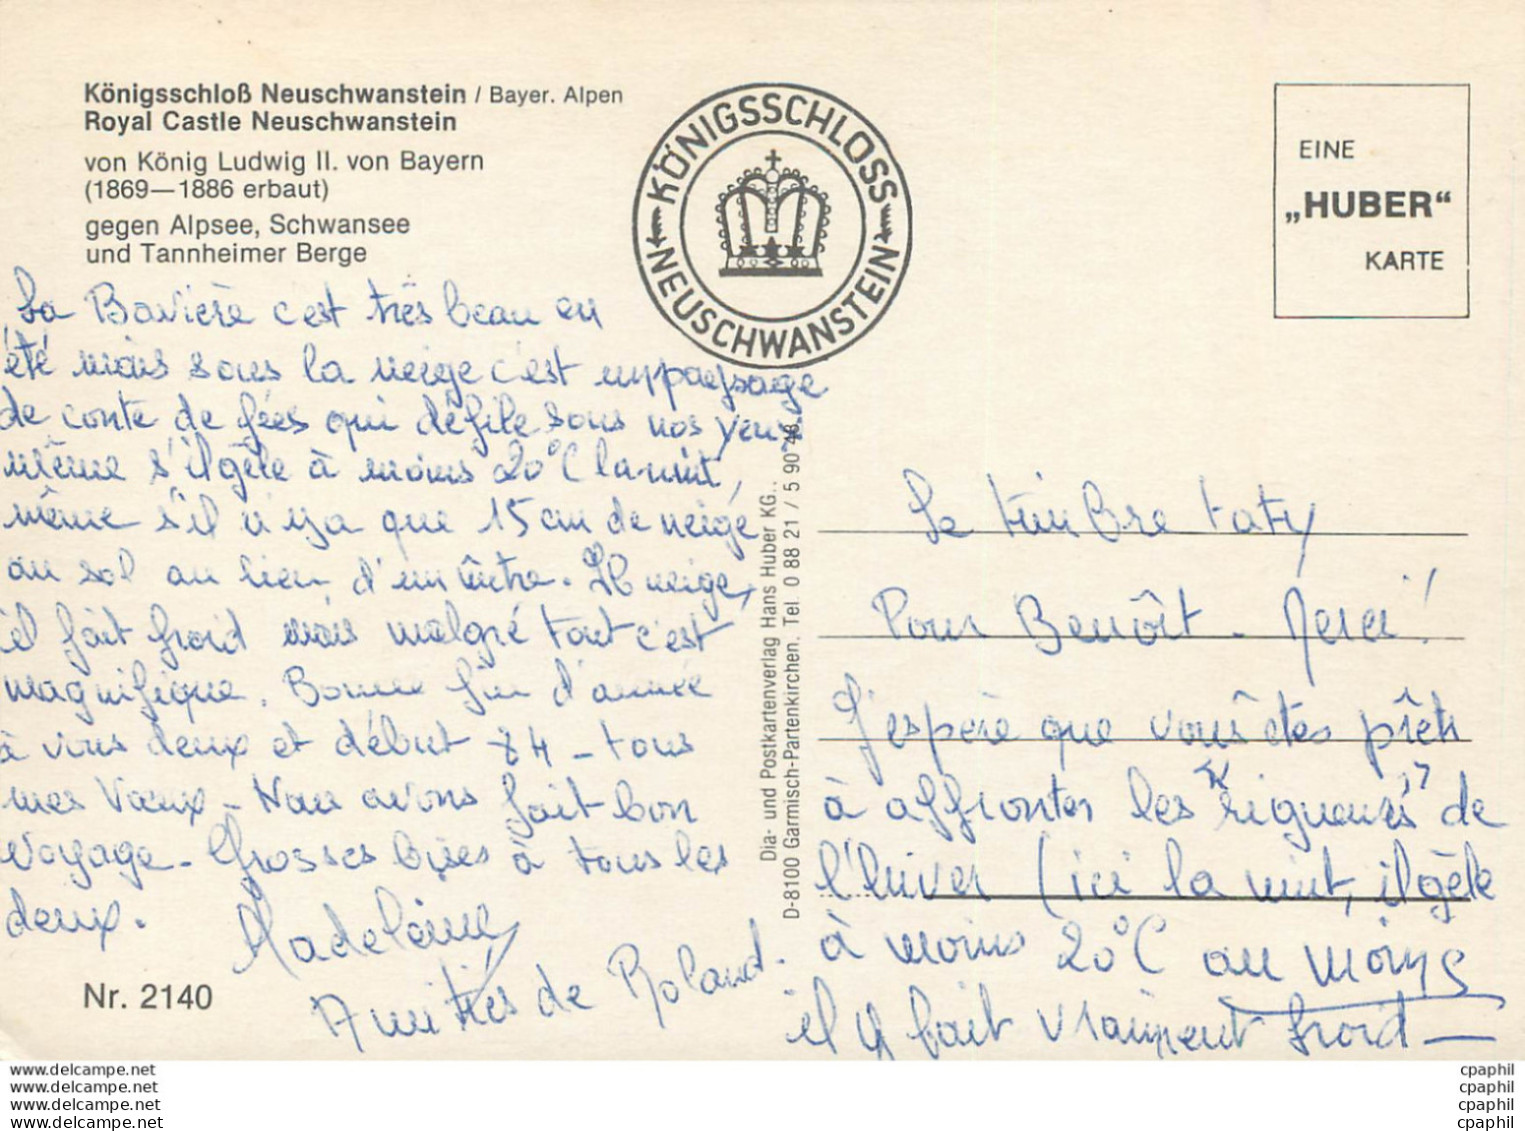 Königsschloß Neuschwanstein / Bayer. Alpen
Royal Castle Neuschwanstein
von König Ludwig II. von Bayern
(1869—1886 erbaut)
gegen Alpsee, Schwansee
und Tannheimer Berge
KÖNIGSSCHLOSS
NEUSCHWANSTEIN
EINE
„HUBER“
KARTE
La Bavière c'est très beau en
été mais sous la neige c'est un paysage
de conte de fées qui défile sous nos yeux
même s'il gèle à moins 20°C la nuit,
même s'il n'y a que 15 cm de neige
au sol au lieu d'un mètre. Il neige,
il fait froid mais malgré tout c'est
magnifique. Bonne fin d'année
à vous deux et début 84 - tous
mes Vœux - Nous avons fait bon
voyage - Grosses bises à tous les
deux.
Madeleine
Amitiés de Roland.
Nr. 2140
Dia- und Postkartenverlag Hans Huber KG.,
D-8100 Garmisch-Partenkirchen. Tel. 0 88 21 / 5 90 48
Le timbre taty
Pour Benoît - Merci!
J'espère que vous êtes prêts
à affronter les "rigueurs" de
l'hiver (ici la nuit, il gèle
à moins 20°C au moins
il y fait vraiment froid —
cpaphil
cpaphil
cpaphil
cpaphil
www.delcampe.net
www.delcampe.net
www.delcampe.net
www.delcampe.net